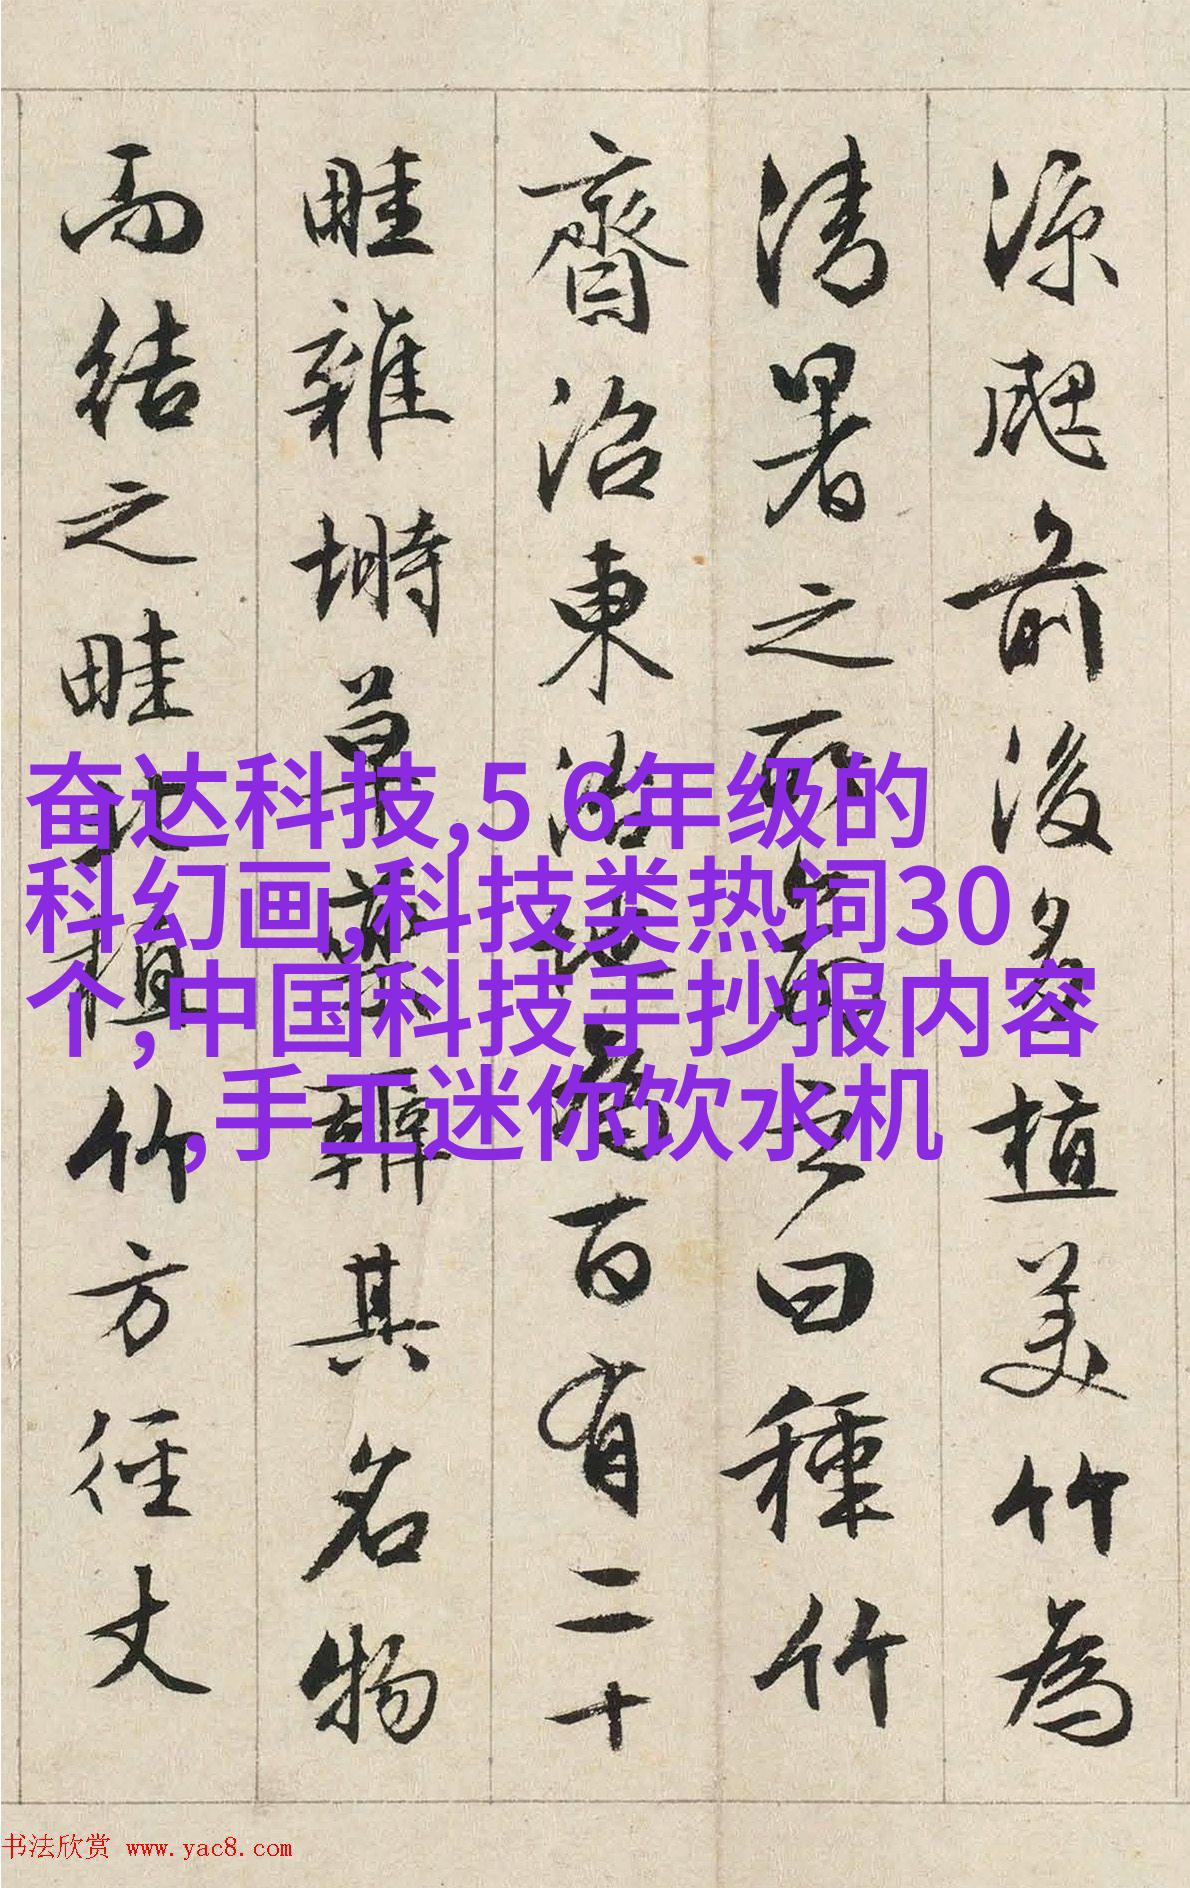 涼颸前後多植美竹為
清暑之所命之曰種竹
齋沼東治地為百有二十
畦雜塒草藥辨其名物
而結之畦北植竹方徑丈
奋达科技,5 6年级的
科幻画,科技类热词30
个,中国科技手抄报内容
,手工迷你饮水机
书法欣赏 www.yac8.com